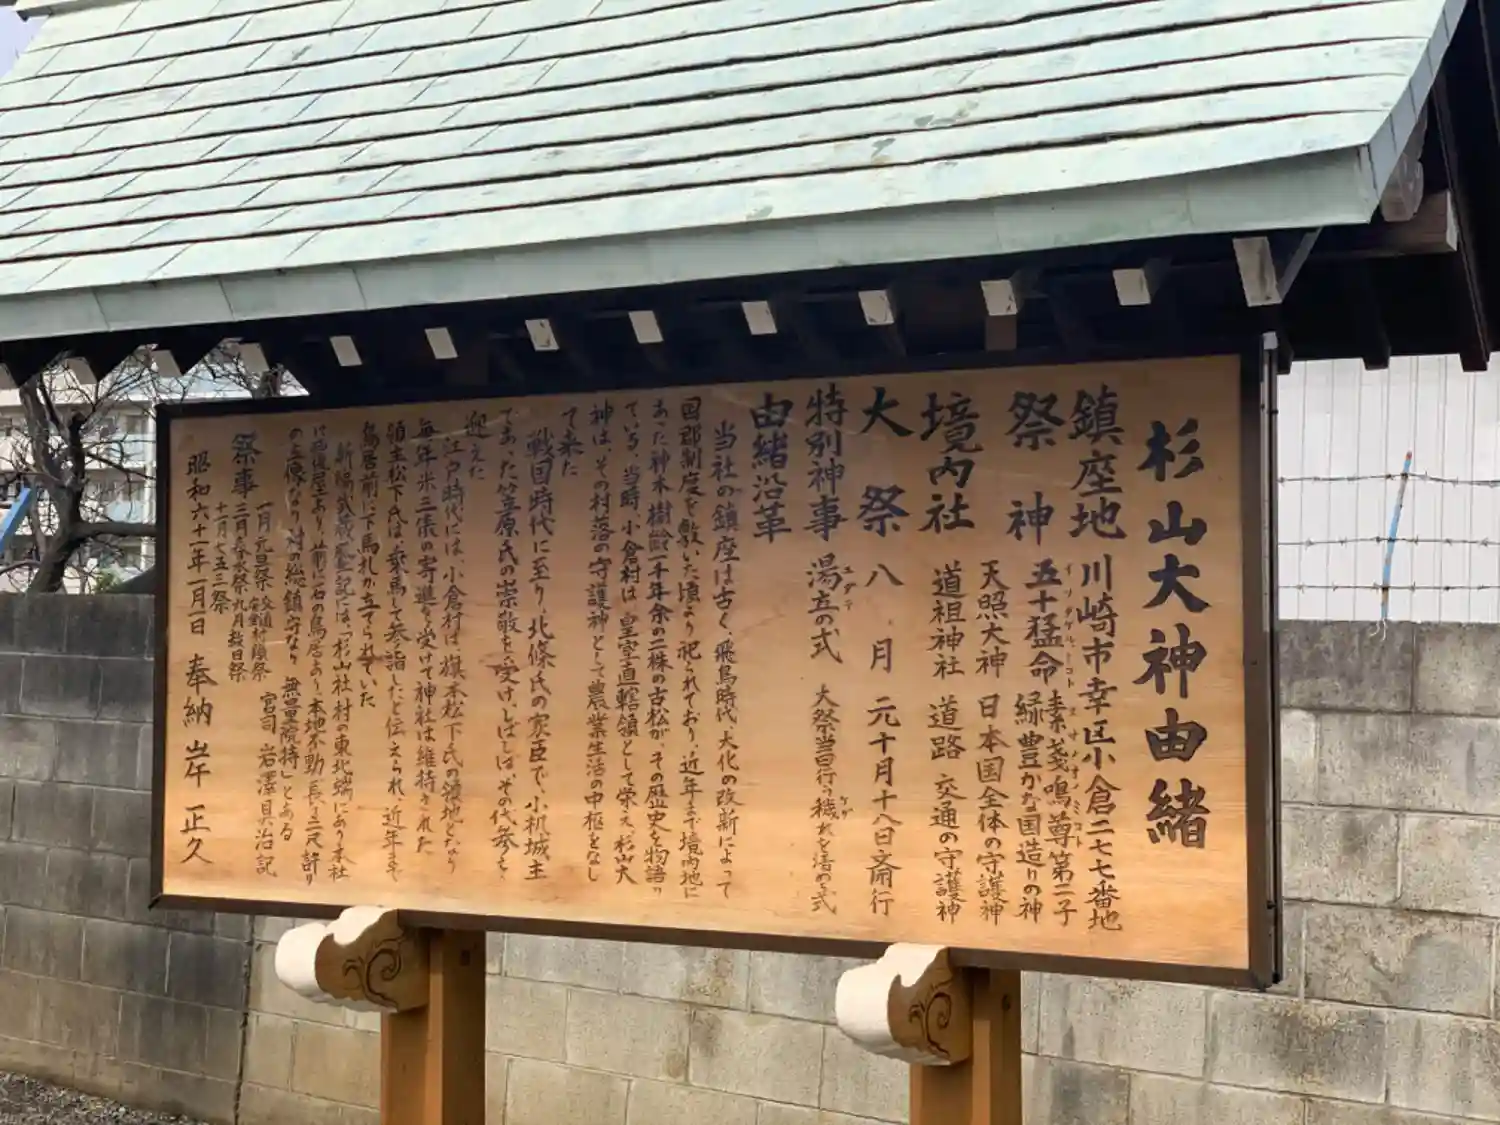 杉山大神由緒
鎮座地 川崎市幸区小倉二七七番地
祭神 五十猛命 素戔鳴尊第二子
イソタケルノミコト スサノオノミコト
緑豊かな国造りの神
境内社 天照大神 日本国全体の守護神
道祖神社 道路交通の守護神
大祭 八月 元十月十八日斎行
特別神事 湯立の式 大祭当日行う穢れを清め式
ユダテ ケガ
由緒沿革
当社の鎮座は古く、飛鳥時代、大化の改新によって
国郡制度を敷いた頃より祀られており、近年まで境内地に
あった神木樹齢一千年余の二株の古松が、その歴史を物語っ
ている。当時、小倉村は、皇室直轄領として栄え、杉山大
神は、その村落の守護神として農業生活の中枢をなし
て来た
戦国時代に至り、北條氏の家臣で、小机城主
であった笠原氏の崇敬を受け、しばしば、その代参を
迎えた
江戸時代には、小倉村は、旗本松下氏の領地となり
毎年米三俵の寄進を受けて神社は維持された
領主松下氏は、乗馬して参詣したと伝えられ、近年まで
鳥居前に下馬札が立てられていた
新編武蔵風土記には、「杉山社、村の東北端にあり本社
に拝殿あり、前に石の鳥居あり、本地不動、長さ二尺許り
の立像なり、村の総鎮守なり 無量院持」とある
祭事 一月元旦祭
三月春水祭 九月 日祭
十一月七五三祭
宮司 岩澤具治記
昭和六十一年一月一日 奉納 岸 正久